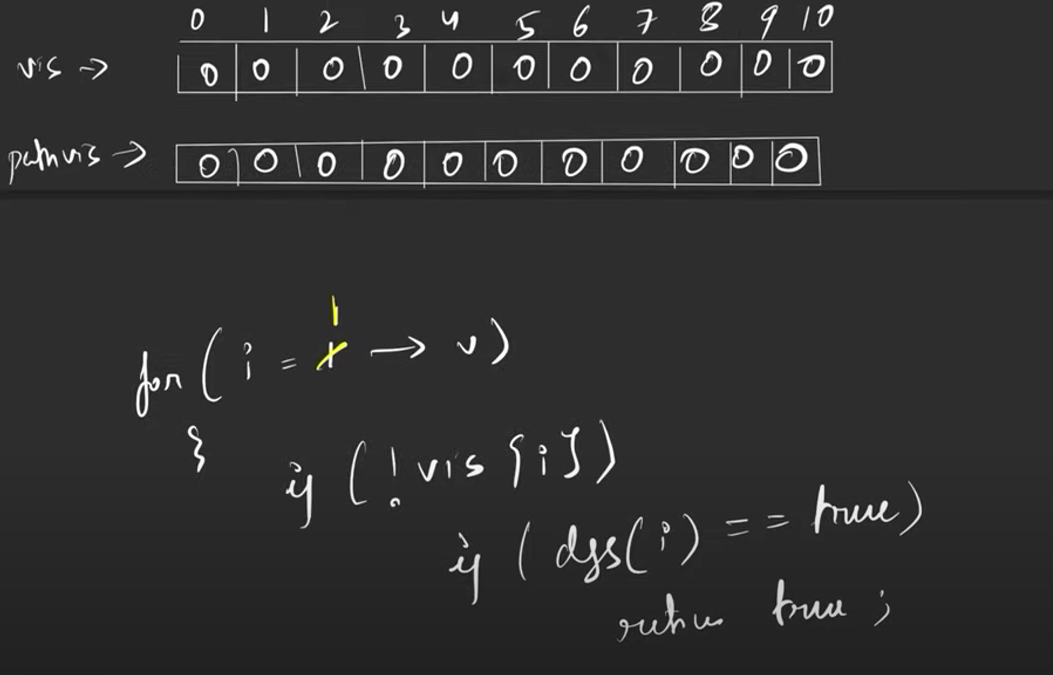 0 1 2 3 4 5 6 7 8 9 10
vis -> 0 0 0 0 0 0 0 0 0 0 0
pathvis -> 0 0 0 0 0 0 0 0 0 0 0
1
for ( i = 1 → v )
{
if ( ! vis [ i ] )
if ( dfs(i) == true )
return true ;